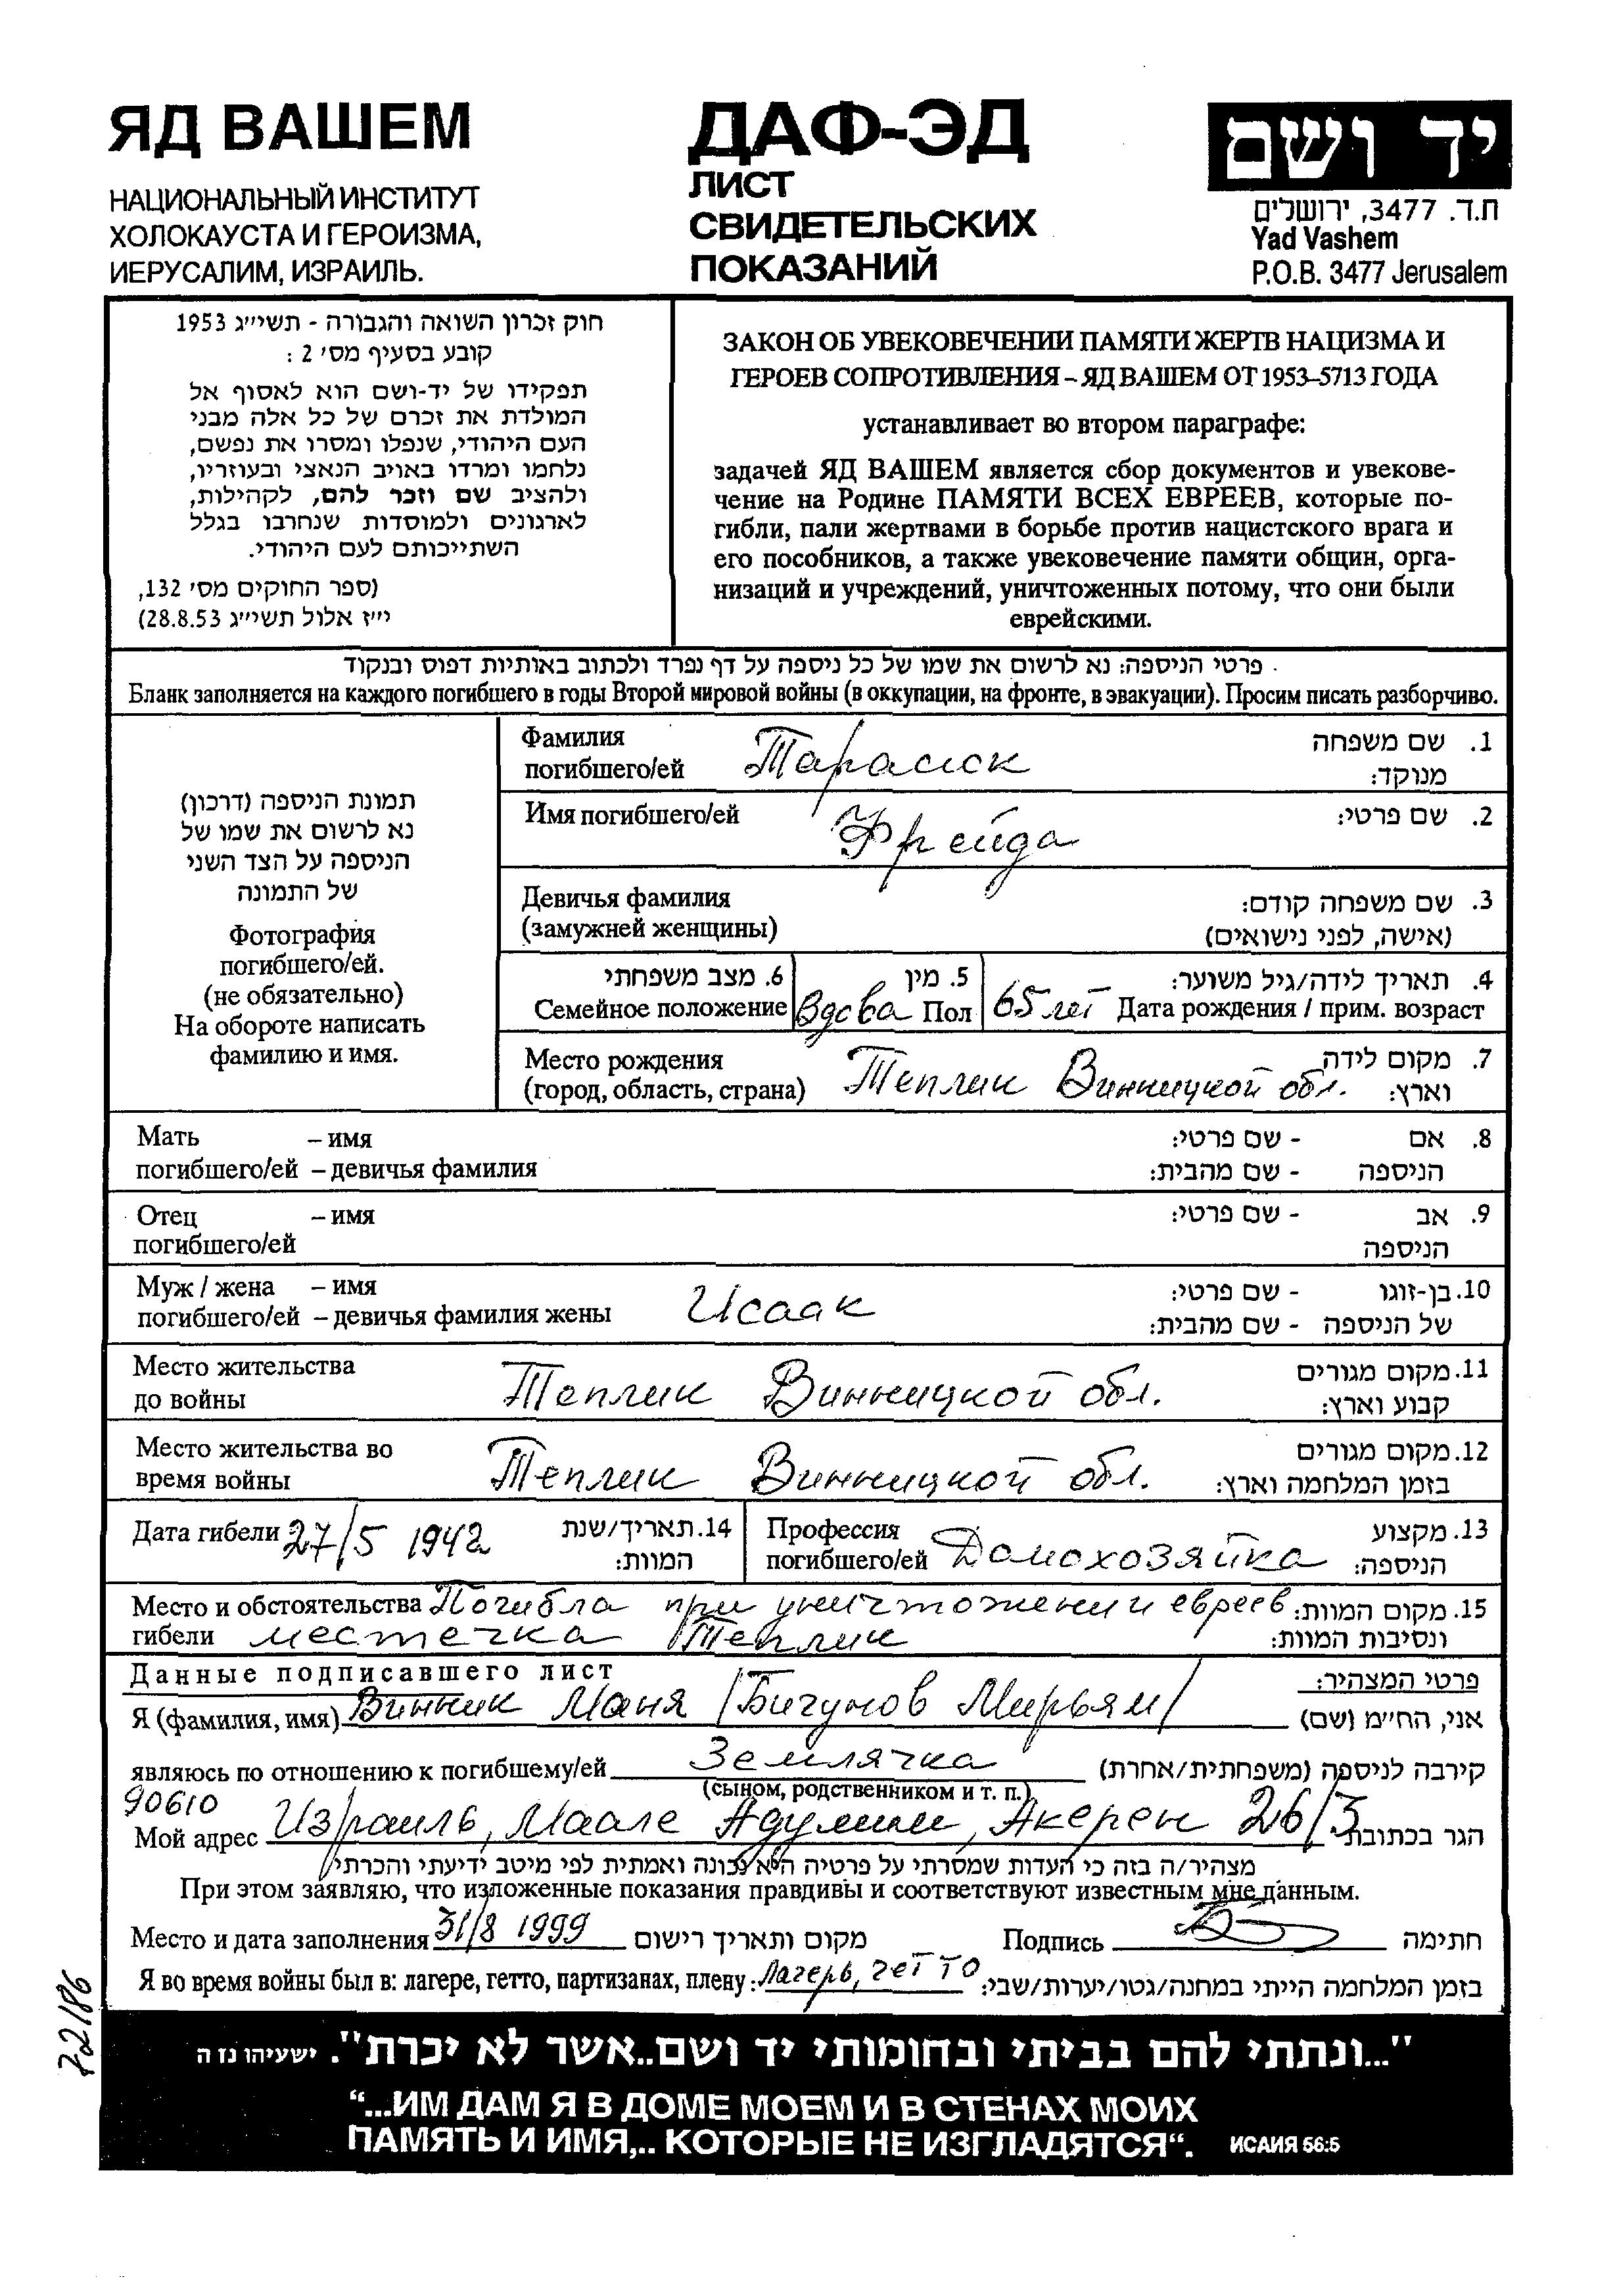 ЯД ВАШЕМ
НАЦИОНАЛЬНЫЙ ИНСТИТУТ
ХОЛОКАУСТА И ГЕРОИЗМА,
ИЕРУСАЛИМ, ИЗРАИЛЬ.
ДАФ-ЭД
ЛИСТ
СВИДЕТЕЛЬСКИХ
ПОКАЗАНИЙ
יד ושם
ת.ד. 3477, ירושלים
Yad Vashem
P.O.B. 3477 Jerusalem
חוק זכרון השואה והגבורה - תשי״ג 1953
קובע בסעיף מס׳ 2 :
תפקידו של יד-ושם הוא לאסוף אל
המולדת את זכרם של כל אלה מבני
העם היהודי, שנפלו ומסרו את נפשם,
נלחמו ומרדו באויב הנאצי ובעוזריו,
ולהציב שם וזכר להם, לקהילות,
לארגונים ולמוסדות שנחרבו בגלל
השתייכותם לעם היהודי.
(ספר החוקים מס׳ 132,
י״ז אלול תשי״ג 28.8.53)
ЗАКОН ОБ УВЕКОВЕЧЕНИИ ПАМЯТИ ЖЕРТВ НАЦИЗМА И
ГЕРОЕВ СОПРОТИВЛЕНИЯ – ЯД ВАШЕМ ОТ 1953–5713 ГОДА
устанавливает во втором параграфе:
задачей ЯД ВАШЕМ является сбор документов и увекове-
чение на Родине ПАМЯТИ ВСЕХ ЕВРЕЕВ, которые по-
гибли, пали жертвами в борьбе против нацистского врага и
его пособников, а также увековечение памяти общин, орга-
низаций и учреждений, уничтоженных потому, что они были
еврейскими.
פרטי הניספה: נא לרשום את שמו של כל ניספה על דף נפרד ולכתוב באותיות דפוס ובנקוד
Бланк заполняется на каждого погибшего в годы Второй мировой войны (в оккупации, на фронте, в эвакуации). Просим писать разборчиво.
תמונת הניספה (דרכון)
נא לרשום את שמו של
הניספה על הצד השני
של התמונה
Фотография
погибшего/ей.
(не обязательно)
На обороте написать
фамилию и имя.
Фамилия Тарасюк 1. שם משפחה
погибшего/ей מנוקד:
Имя погибшего/ей Фрейда 2. שם פרטי:
Девичья фамилия 3. שם משפחה קודם:
(замужней женщины) (אישה, לפני נישואים)
6. מצב משפחתי 5. מין 4. תאריך לידה/גיל משוער:
Семейное положение Вдова Пол 65 лет Дата рождения / прим. возраст
Место рождения 7. מקום לידה
(город, область, страна) Теплик Винницкой обл. וארץ:
Мать – имя 8. אם - שם פרטי:
погибшего/ей – девичья фамилия הניספה - שם מהבית:
Отец – имя 9. אב - שם פרטי:
погибшего/ей הניספה
Муж / жена – имя Исаак 10. בן-זוגו - שם פרטי:
погибшего/ей – девичья фамилия жены של הניספה - שם מהבית:
Место жительства 11. מקום מגורים
до войны Теплик Винницкой обл. קבוע וארץ:
Место жительства во 12. מקום מגורים
время войны Теплик Винницкой обл. בזמן המלחמה וארץ:
Дата гибели 27/5 1942 14. תאריך/שנת המוות:
Профессия 13. מקצוע
погибшего/ей Домохозяйка הניספה:
Место и обстоятельства Погибла при уничтожении евреев 15. מקום המוות:
гибели местечка Теплик ונסיבות המוות:
Данные подписавшего лист פרטי המצהיר:
Я (фамилия, имя) Винник Маня /Бигунов Мирьям/ אני, הח״מ (שם)
являюсь по отношению к погибшему/ей Землячка קירבה לניספה (משפחתית/אחרת)
(сыном, родственником и т. п.)
90610
Мой адрес Израиль, Маале Адумим, Акерен 26/3 הגר בכתובת
מצהיר/ה בזה כי העדות שמסרתי על פרטיה היא נכונה ואמתית לפי מיטב ידיעתי והכרתי
При этом заявляю, что изложенные показания правдивы и соответствуют известным мне данным.
Место и дата заполнения 31/8 1999 מקום ותאריך רישום Подпись חתימה
Я во время войны был в: лагере, гетто, партизанах, плену: Лагерь, гетто בזמן המלחמה הייתי במחנה/גטו/יערות/שבי:
72186
"...ונתתי להם בביתי ובחומותי יד ושם..אשר לא יכרת". ישעיהו נז ה
“...ИМ ДАМ Я В ДОМЕ МОЕМ И В СТЕНАХ МОИХ
ПАМЯТЬ И ИМЯ,.. КОТОРЫЕ НЕ ИЗГЛАДЯТСЯ“. ИСАИЯ 56:5